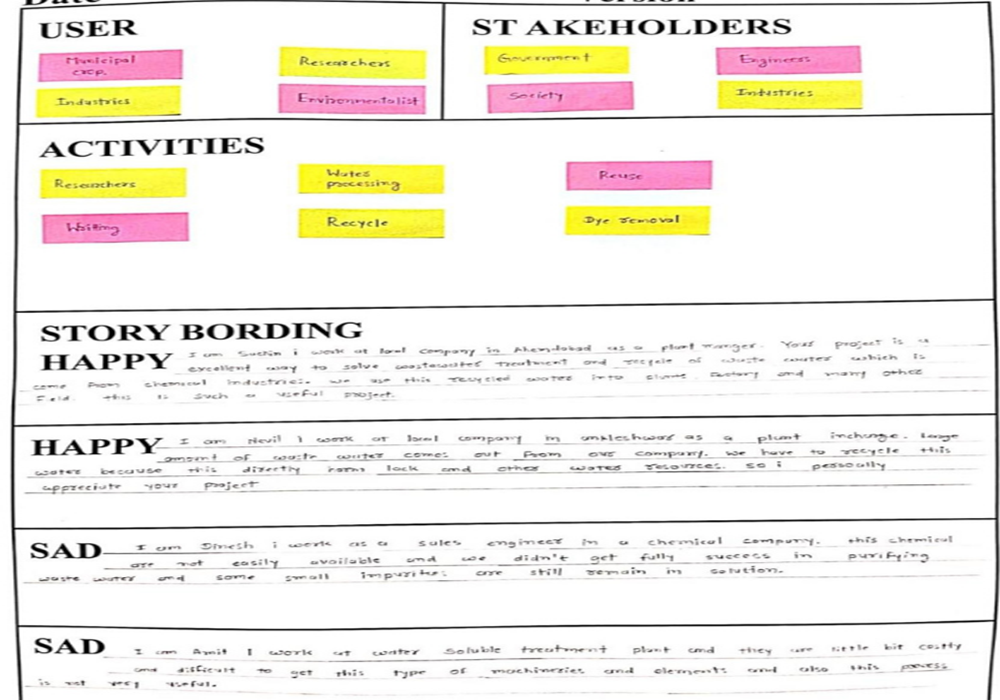 Date Version
USER
Municipal
crop.
Researchers
Industries
Environmentalist
ST AKEHOLDERS
Government
Engineers
Society
Industries
ACTIVITIES
Researchers
Water
processing
Reuse
Waiting
Recycle
Dye removal
STORY BORDING
HAPPY I am Sachin i work at local company in Ahemdabad as a plant manger. Your project is a
excellent way to solve wastewater treatment and recycle of waste water which is
come from chemical industries. we use this recycled water into factory and many other
Field. this is such a useful project.
HAPPY I am Nevil I work at local company in ankleshwar as a plant incharge. Large
amount of waste water comes out from our company. we have to recycle this
water because this directly harms lack and other water resources. so i personally
appreciate your project
SAD I am Dinesh i work as a sales engineer in a chemical company. this chemical
are not easily available and we didn't get fully success in purifying
waste water and some small impurities are still remain in solution.
SAD I am Amit I work at water Soluble treatment plant and they are little bit costly
and difficult to get this type of machineries and elements and also this process
is not very useful.